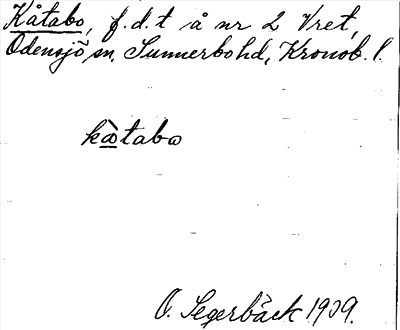 Kåtabo, f.d.t å nr 2 Vret,
Odensjö sn, Sunnerbo hd, Kronob. l.
kàtabo
O. Segerbäck 1939.